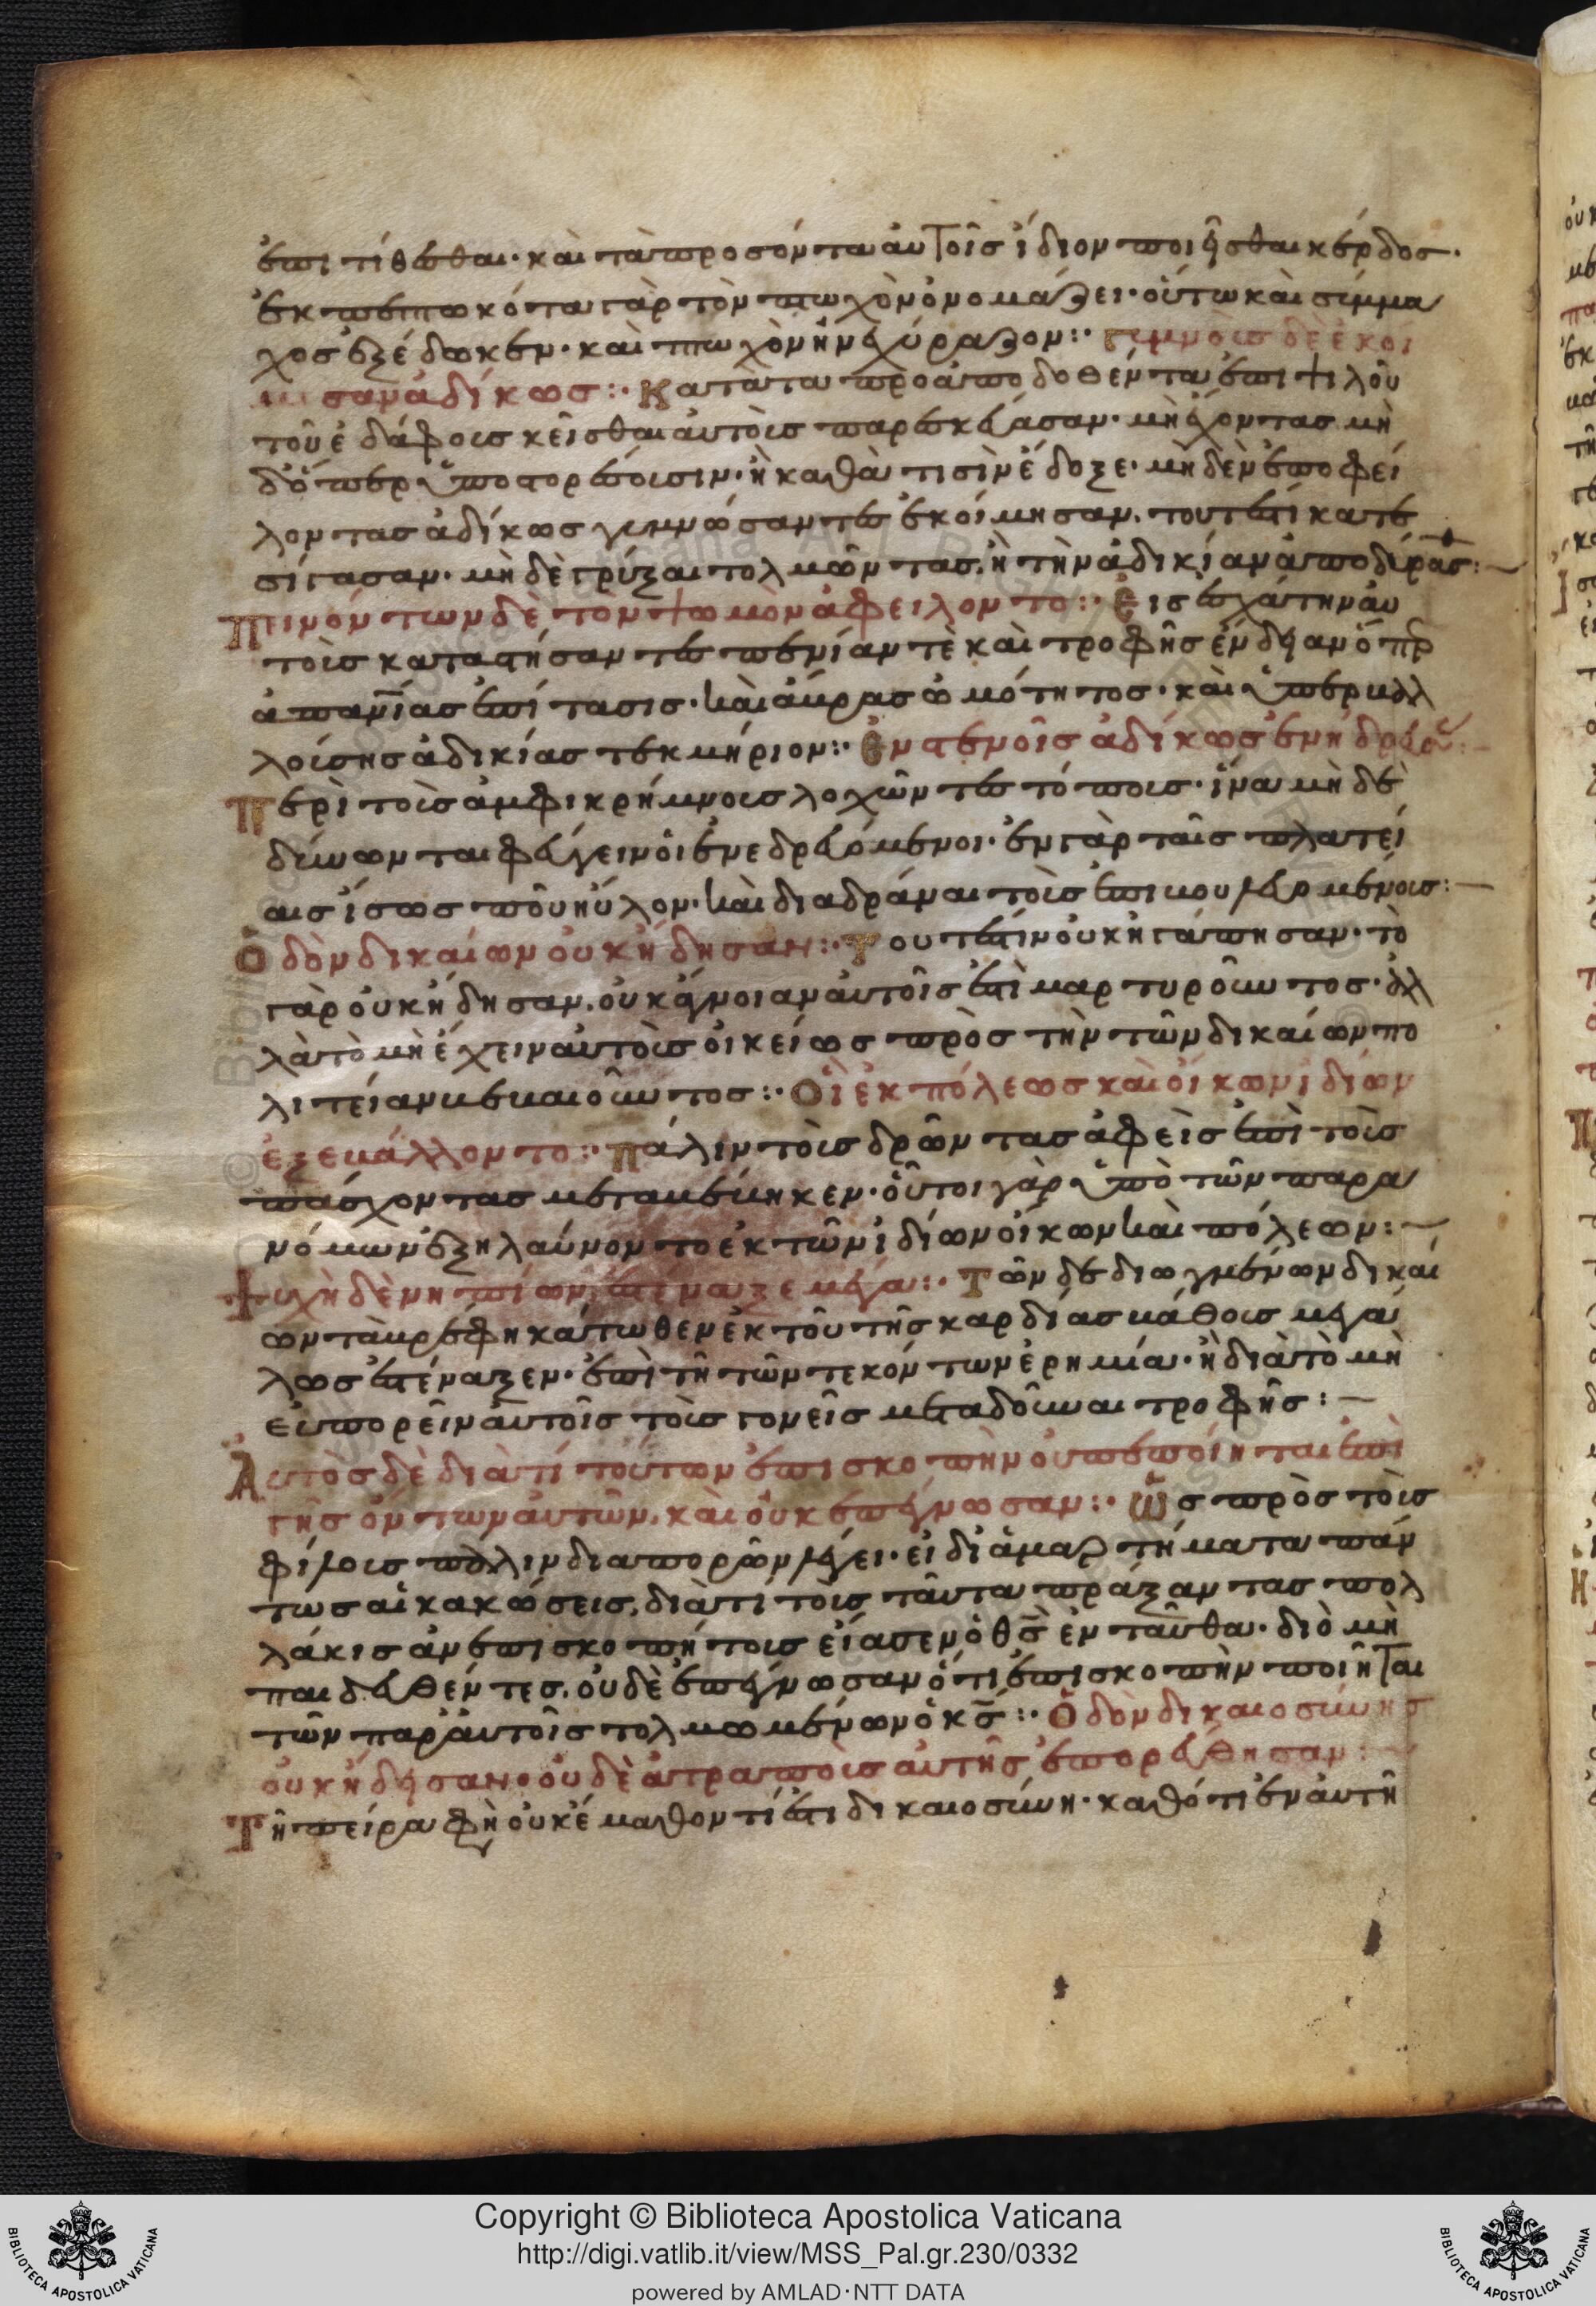 ἐπιτίθεσθαι· καὶ τὰ προσόντα αὐτοῖς ἴδιον ποιῆσθαι κέρδος·
ἐκπεπτωκότα γὰρ τὸν πτωχὸν ὀνομάζει· οὕτω καὶ σύμμα
χος ἐξέδωκεν· καὶ πτωχὸν ἠνεχύραζον:· γυμνοὺς δὲ ἐκοί
μισαν ἀδίκως:· Κατὰ τὰ προαποδοθέντα ἐπὶ ψιλοῦ
τοῦ ἐδάφους κεῖσθαι αὐτοὺς παρεσκεύασαν· μὴ ἔχοντας μὴ
δ' ὅπερ ὑποστορέσουσιν· ἢ καθὰ τισὶν ἔδοξε· μηδὲν ἐποφεί
λοντας ἀδίκως γυμνώσαντες ἐκοίμησαν. τουτέστι κατε
σίγασαν· μὴ δὲ γρύξαι τολμῶντας. ἢ τὴν ἀδικίαν ἀποδύρασ:
Πινόντων δὲ τὸν ψωμὸν ἀφείλοντο:· Εἰς ἐσχάτην αὐ
τοὺς καταστήσαντες πενίαν τὲ καὶ τροφῆς ἔνδειαν ὅπρ
ἀπανίας ἐπίτασις· καὶ ἄκρας ὠμότητος· καὶ ὑπερβαλ
λούσης ἀδικίας τεκμήριον:· Ἐν στενοῖς ἀδίκως ἐνήδρευσ:
Περὶ τοὺς ἀμφικρήμνους λοχῶντες τόπους· ἵνα μὴ δὲ
δύνωνται φεύγειν οἱ ἐνεδρευόμενοι· ἐν γὰρ ταῖς πλατεί
αις ἴσως που ηὔλον· καὶ διαδράναι τοὺς ἐπιβουλευομένους:
Ὁδὸν δικαίων οὐκ ἤδησαν:· Τουτέστιν οὐκ ἠγάπησαν· τὸ
γὰρ οὐκ ἤδησαν. οὐκ ἄγνοιαν αὐτοῖς ἐπιμαρτυροῦντος· ἀλ
λὰ τὸ μὴ ἔχειν αὐτοὺς οἰκείως πρὸς τὴν τῶν δικαίων πο
λιτείαν βεβαιοῦντος:· Οἳ ἐκ πόλεως καὶ οἴκων ἰδίων
ἐξεβάλλοντο:· Πάλιν τοὺς δρῶντας ἀφεὶς ἐπὶ τοὺς
πάσχοντας μεταβέβηκεν· οὗτοι γὰρ ὑπὸ τῶν παρα
νόμων ἐξηλαύνοντο ἐκ τῶν ἰδίων οἴκων καὶ πόλεων:
Ψυχὴ δὲ νηπίων ἐστέναξε μέγα:· Τῶν δὲ διωγμένων δικαί
ων τὰ βρέφη κάτωθεν ἐκ τοῦ τῆς καρδίας βάθους μεγά
λως ἐστέναζεν· ἐπὶ τῇ τῶν τεκόντων ἐρημία· ἢ διὰ τὸ μὴ
εὐπορεῖν αὐτοῖς τοὺς γονεῖς μεταδοῦναι τροφῆς:
Αὐτὸς δὲ διὰ τί τούτων ἐπισκοπὴν οὐ πεποίηται ἐπὶ
γῆς ὄντων αὐτῶν. καὶ οὐκ ἐπέγνωσαν:· Ὡς πρὸς τοὺς
φίλους πάλιν διαπορῶν λέγει· εἰ δι' ἁμαρτήματα πάν
τως αἱ κακώσεις. διὰ τί τοὺς ταῦτα πράξαντας πολ
λάκις ἀνεπισκοπήτους εἴασεν ὁ θ̅ς̅ ἐνταῦθα· διὸ μὴ
παιδευθέντες. οὐδὲ ἐπέγνωσαν ὅτι ἐπισκοπὴν ποιῆται
τῶν παρ' αὐτοῖς τολμωμένων ὁ κ̅ς̅:· Ὁδὸν δικαιοσύνης
οὐκ ἤδεισαν· οὐδὲ ἀτραποὺς αὐτῆς ἐπορεύθησαν:
Τῇ πείρα φὴ οὐκ ἔμαθον τί ἐστι δικαιοσύνη· καθότι ἐν αὐτῆ
Copyright © Biblioteca Apostolica Vaticana
http://digi.vatlib.it/view/MSS_Pal.gr.230/0332
powered by AMLAD·NTT DATA
BIBLIOTECA APOSTOLICA VATICANA
BIBLIOTECA APOSTOLICA VATICANA